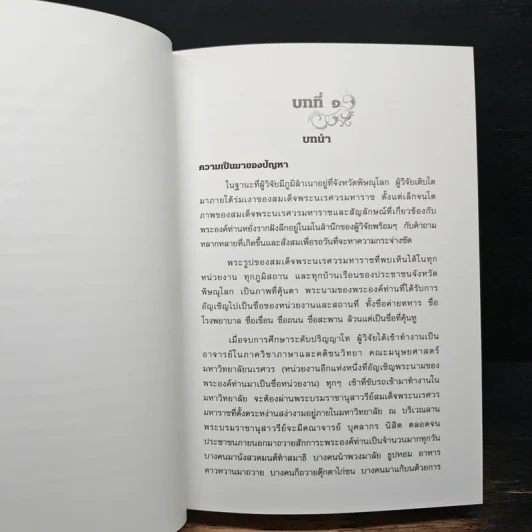 บทที่ ๑
บทนำ
ความเป็นมาของปัญหา
ในฐานะที่ผู้วิจัยมีภูมิลำเนาอยู่ที่จังหวัดพิษณุโลก ผู้วิจัยเติบโต
มาภายใต้ร่มเงาของสมเด็จพระนเรศวรมหาราช ตั้งแต่เล็กจนโต
ภาพของสมเด็จพระนเรศวรมหาราชและสัญลักษณ์ที่เกี่ยวข้องกับ
พระองค์ท่านหยั่งรากฝังลึกอยู่ในมโนสำนึกของผู้วิจัยพร้อมๆ กับคำถาม
หลากหลายที่เกิดขึ้นและสั่งสมเพื่อรอวันที่จะหาความกระจ่างชัด
พระรูปของสมเด็จพระนเรศวรมหาราชที่พบเห็นได้ในทุก
หน่วยงาน ทุกภูมิสถาน และทุกบ้านเรือนของประชาชนจังหวัด
พิษณุโลก เป็นภาพที่คุ้นตา พระนามของพระองค์ท่านที่ได้รับการ
อัญเชิญไปเป็นชื่อของหน่วยงานและสถานที่ ทั้งชื่อค่ายทหาร ชื่อ
โรงพยาบาล ชื่อเขื่อน ชื่อถนน ชื่อสะพาน ล้วนแต่เป็นชื่อที่คุ้นหู
เมื่อจบการศึกษาระดับปริญญาโท ผู้วิจัยได้เข้าทำงานเป็น
อาจารย์ในภาควิชาภาษาและคติชนวิทยา คณะมนุษยศาสตร์
มหาวิทยาลัยนเรศวร (หน่วยงานอีกแห่งหนึ่งที่อัญเชิญพระนามของ
พระองค์ท่านมาเป็นชื่อหน่วยงาน) ทุกๆ เช้าที่ขับรถเข้ามาทำงานใน
มหาวิทยาลัย จะต้องผ่านพระบรมราชานุสาวรีย์สมเด็จพระนเรศวร
มหาราชที่ตั้งตระหง่านสง่างามอยู่ภายในมหาวิทยาลัย ณ บริเวณลาน
พระบรมราชานุสาวรีย์จะมีคณาจารย์ บุคลากร นิสิต ตลอดจน
ประชาชนภายนอกมาถวายสักการะพระองค์ท่านเป็นจำนวนมากทุกวัน
บางคนมานั่งสวดมนต์ทำสมาธิ บางคนนำพวงมาลัย ธูปหอม อาหาร
คาวหวานมาถวาย บางคนก็ถวายตุ๊กตาไก่ชน บางคนมาแก้บนด้วยการ